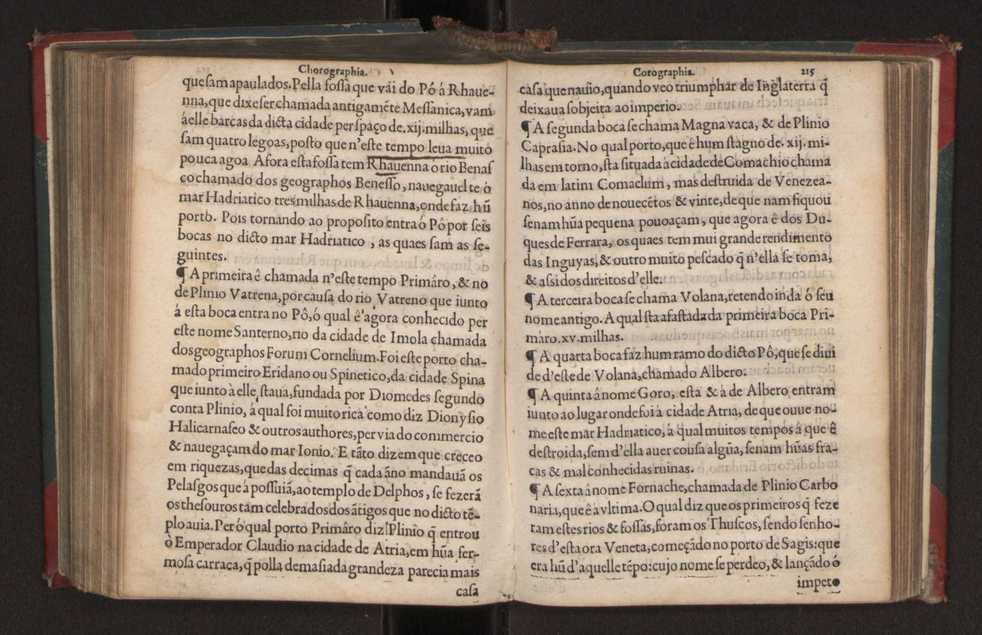 Chorographia.
que sam apaulados. Pella fossa que vái do Pó á Rhaue-
nna, que dixe ser chamada antigamẽte Messanica, vam
á elle barcas da dicta cidade per spaço de. xij. milhas, que
sam quatro legoas, posto que n'este tempo leua muito
pouca agoa Afora esta fossa tem Rhauenna o rio Benas
co chamado dos geographos Benesso, nauegauel te ó
mar Hadriatico tres milhas de Rhauenna, onde faz hũ
porto. Pois tornando ao proposito entra ó Pó por seis
bocas no dicto mar Hadriatico, as quaes sam as se-
guintes.
¶ A primeira ê chamada n'este tempo Primáro, & no
de Plinio Vatrena, por causa do rio Vatreno que iunto
á esta boca entra no Pô, ó qual é agora conhecido per
este nome Santerno, rio da cidade de Imola chamada
dos geographos Forum Cornelium. Foi este porto cha-
mado primeiro Eridano ou Spinetico, da cidade Spina
que iunto à elle staua, fundada por Diomedes segundo
conta Plinio, à qual foi muito rica como diz Dionysio
Halicarnaseo & outros authores, per via do commercio
& nauegaçam do mar Ionio. E tãto dizem que creceo
em riquezas, que das decimas q̃ cada ãno mandauã os
Pelasgos que à possuiã, ao templo de Delphos, se fezerã
os thesouros tam celebrados dos ãtigos que no dicto tẽ-
plo auia. Per ó qual porto Primâro diz Plinio q̃ entrou
ò Emperador Claudio na cidade de Atria, em hũa fer-
mosa carraca, q̃ polla demasiada grandeza parecia mais
casa
Corographia. 215
casa que nauio, quando veo triumphar de Inglaterra q̃
deixaua sobjeita ao imperio.
¶ A segunda boca se chama Magna vaca, & de Plinio
Caprasia. No qual porto, que ê hum stagno de. xij. mi-
lhas em torno, sta situada à cidade de Comachio chama
da em latim Comaclum, mas destruida de Venezea-
nos, no anno de nouecẽtos & vinte, de que nam fiquou
senam hũa pequena pouoaçam, que agora ê dos Du-
ques de Ferrara, os quaes tem mui grande rendimento
das Inguyas, & outro muito pescado q̃ n'ella se toma,
& assi dos direitos d'elle.
¶ A terceira boca se chama Volana, retendo inda ó seu
nome antigo. A qual sta afastada da primeira boca Pri-
máro. xv. milhas.
¶ A quarta boca faz hum ramo do dicto Pô, que se diui
de d'este de Volana, chamado Albero.
¶ A quinta á nome Goro, esta & à de Albero entram
iunto ao lugar onde foi à cidade Atria, de que ouue no-
me este mar Hadriatico, à qual muitos tempos à que ê
destroida, sem d'ella auer cousa algũa, senam hũas fra-
cas & mal conhecidas ruinas.
¶ A sexta á nome Fornache, chamada de Plinio Carbo
naria, que ê a vltima. O qual diz que os primeiros q̃ feze
ram estes rios & fossas, foram os Thuscos, sendo senho-
res d'esta ora Veneta, começãdo no porto de Sagis: que
era hũ d'aquelle tẽpo: cujo nome se perdeo, & lançãdo ó
impeto